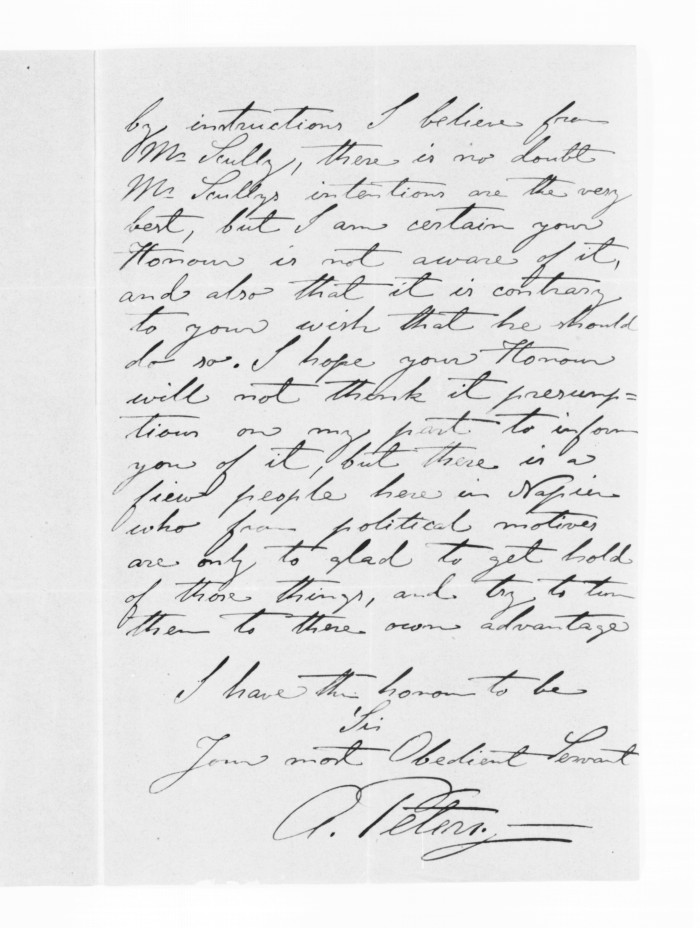 by instructions I believe from
Mr Scully, there is no doubt
Mr Scullys intentions are the very
best, but I am certain your
Honour is not aware of it,
and also that it is contrary
to your wish that he should
do so. I hope your Honour
will not think it presump=
tious on my part to inform
you of it, but there is a
fiew people here in Napier
who from political motives
are only to glad to get hold
of those things, and try to turn
them to there own advantage
I have the honour to be
Sir
Your most Obedient Servant
A. Peters.